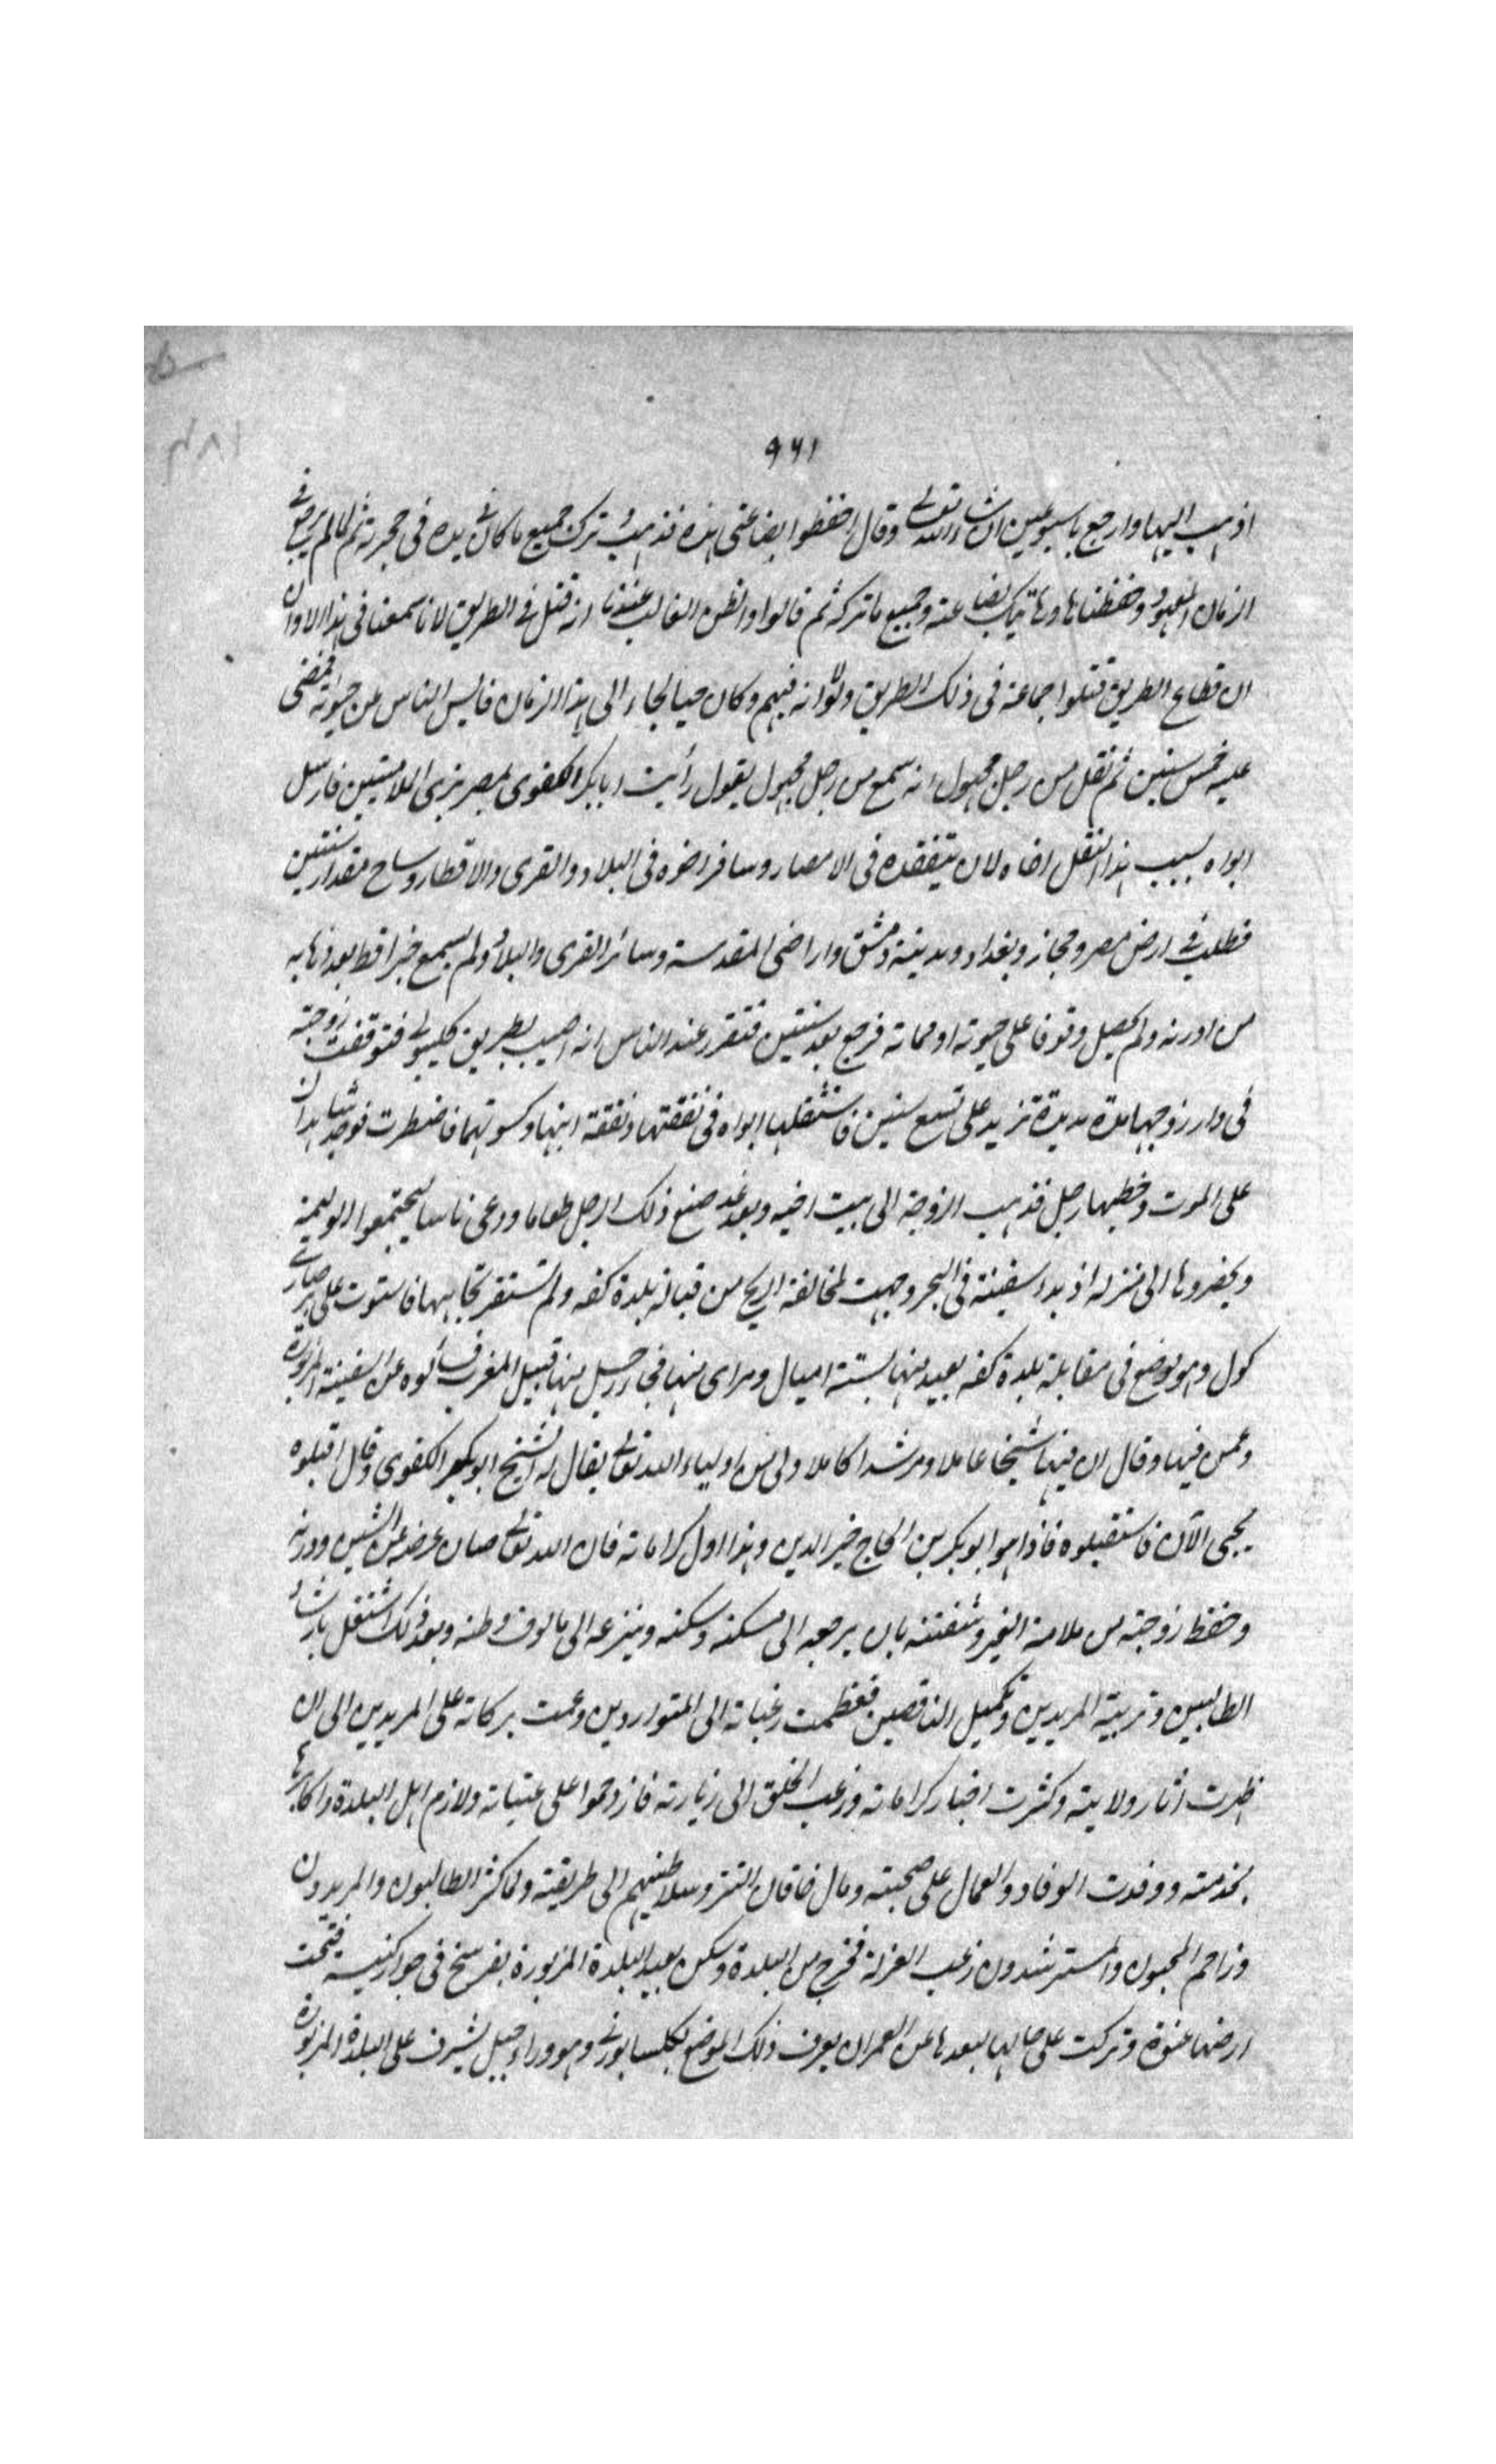 ٩٦١
اذهب اليها وارجع باسبوعين ان شاء الله تعالى وقال احفظوا بضاعتى هذه فذهب وترك جميع ما كان فى يده فى حجرته ثم لما لم يرجع فى
الزمان المعهود وحفظناها وهاتيك بضاعته وجميع ما تركه ثم قالوا والظن الغالب عندنا انه قتل فى الطريق لانا سمعنا فى هذا الاوان
ان قطاع الطريق قتلوا جماعة فى ذلك الطريق ولو انه فيهم وكان حيا لجاء الى هذا الزمان فايس الناس عن حيوته فمضى
عليه خمس سنين ثم نقل من رجل مجهول انه سمع من رجل مجهول يقول رأيت ابا بكر الكفوى بمصر بزى الملامتيين فارسل
ابواه بسبب هذا النقل اخاه لان يتفقده فى الامصار وسافر اخوه فى البلاد والقرى والاقطار وساح مقدار سنتين
فطلب فى ارض مصر وحجاز وبغداد ومدينة دمشق واراضى المقدسة وسائر القرى والبلاد ولم يسمع خبرا قط بعد ذهابه
من ادرنه ولم يحصل وقوفا على حيوته او مماته فرجع بعد سنتين فتقرر عند الناس انه اصيب بطريق كليبولى فتوقفت زوجته
فى دار زوجها مدة مديدة تزيد على تسع سنين فاستثقلها ابواه فى نفقتها ونفقة ابنها وكسوتهما فاضطرت فوجد شاهدان
على الموت وخطبها رجل فذهب الزوجة الى بيت اخيه وبعد غد صنع ذلك الرجل طعاما ودعى ناسا ليجتمعوا الوليمة
ويحضروها الى منزله اذ بدا سفينة فى البحر وجهت لمخالفة الريح من قبالة بلدة كفه ولم تستقر تجاهها فاستوت على
كول وهو موضع فى مقابلة بلدة كفه بعيد منها بستة اميال ومراى منها فجاء رجل منها قبيل المغرب فسألوه عن السفينة المزبورة
وعمن فيها وقال ان فيها شيخا عاملا ومرشدا كاملا ولى من اولياء الله تعالى يقال له الشيخ ابو بكر الكفوى وقال اقبلوه
يجئ الآن فاستقبلوه فاذا هو ابو بكر بن الحاج خير الدين وهذا اول كراماته فان الله تعالى صان عرضه عن الشين ودرنه
وحفظ زوجته من ملامة الغير وشفتنه بان يرجعه الى مسكنه وسكنه وينزعه الى مالوف وطنه وبعد ذلك اشتغل بارشاد
الطالبين وتربية المريدين وتكميل الناقصين فعظمت رغباته الى المتواردين وعمت بركاته على المريدين الى ان
ظهرت اثار ولايته وكثرت اخبار كراماته ورغب الخلق الى زيارته فازدحموا على عتباته ولازم اهل البلدة واكابرها
بخدمته ووفدت الوفاد والعمال على صحبته ومال خاقان التتر وسلاطينهم الى طريقته ولما كثر الطالبون والمريدون
وزاحم المحبون والمسترشدون رغب العزلة فخرج من البلدة وسكن بعيد البلدة المزبورة بفرسخ فى جوار كنيسة فتحت
ارضها عنوة وتركت على حالها لبعدها عن العمران يعرف ذلك الموضع وهو وراء جبل يشرف على البلدة المزبورة